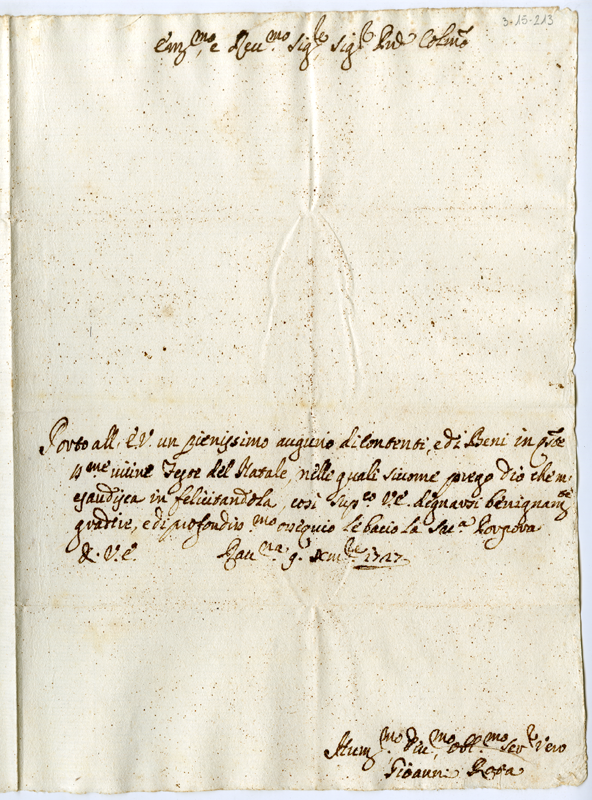 3-15-213
Em.mo e Reu.mo Sig.e Sig.e Pnē Colmo
Porto all' E.V. un pienissimo augurio di contenti, e di Beni in q.ste
uicine Feste del Natale, nelle quali siccome prego Dio che m'
esaudisca in felicitandola, così sup.co V.E. degnarsi benignam.te
gradire, e di profondiss.mo ossequio le bacio la Sac.a Porpora
D. V.E. Rau.na 9. Xm.bre 1727
Hum.mo Diu.mo obl.mo Ser.e uero
Gioann: Rota